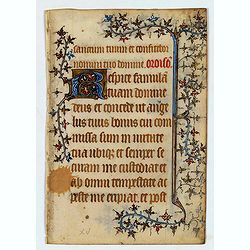 sanctum tuum et confiteor
nomini tuo domine. Oroiso.
Respice famulā
tuam domine
deus et concede ut ange
lus tuus bonus cui com
missa sum in virtute
tua ubiqz et semper se
curam me custodiat et
ab omni tempestate ac
peste me eripiat. et post